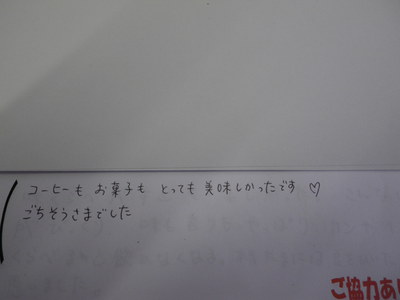 コーヒーも お菓子も とっても 美味しかったです ♡
ごちそうさまでした
ご協力あり